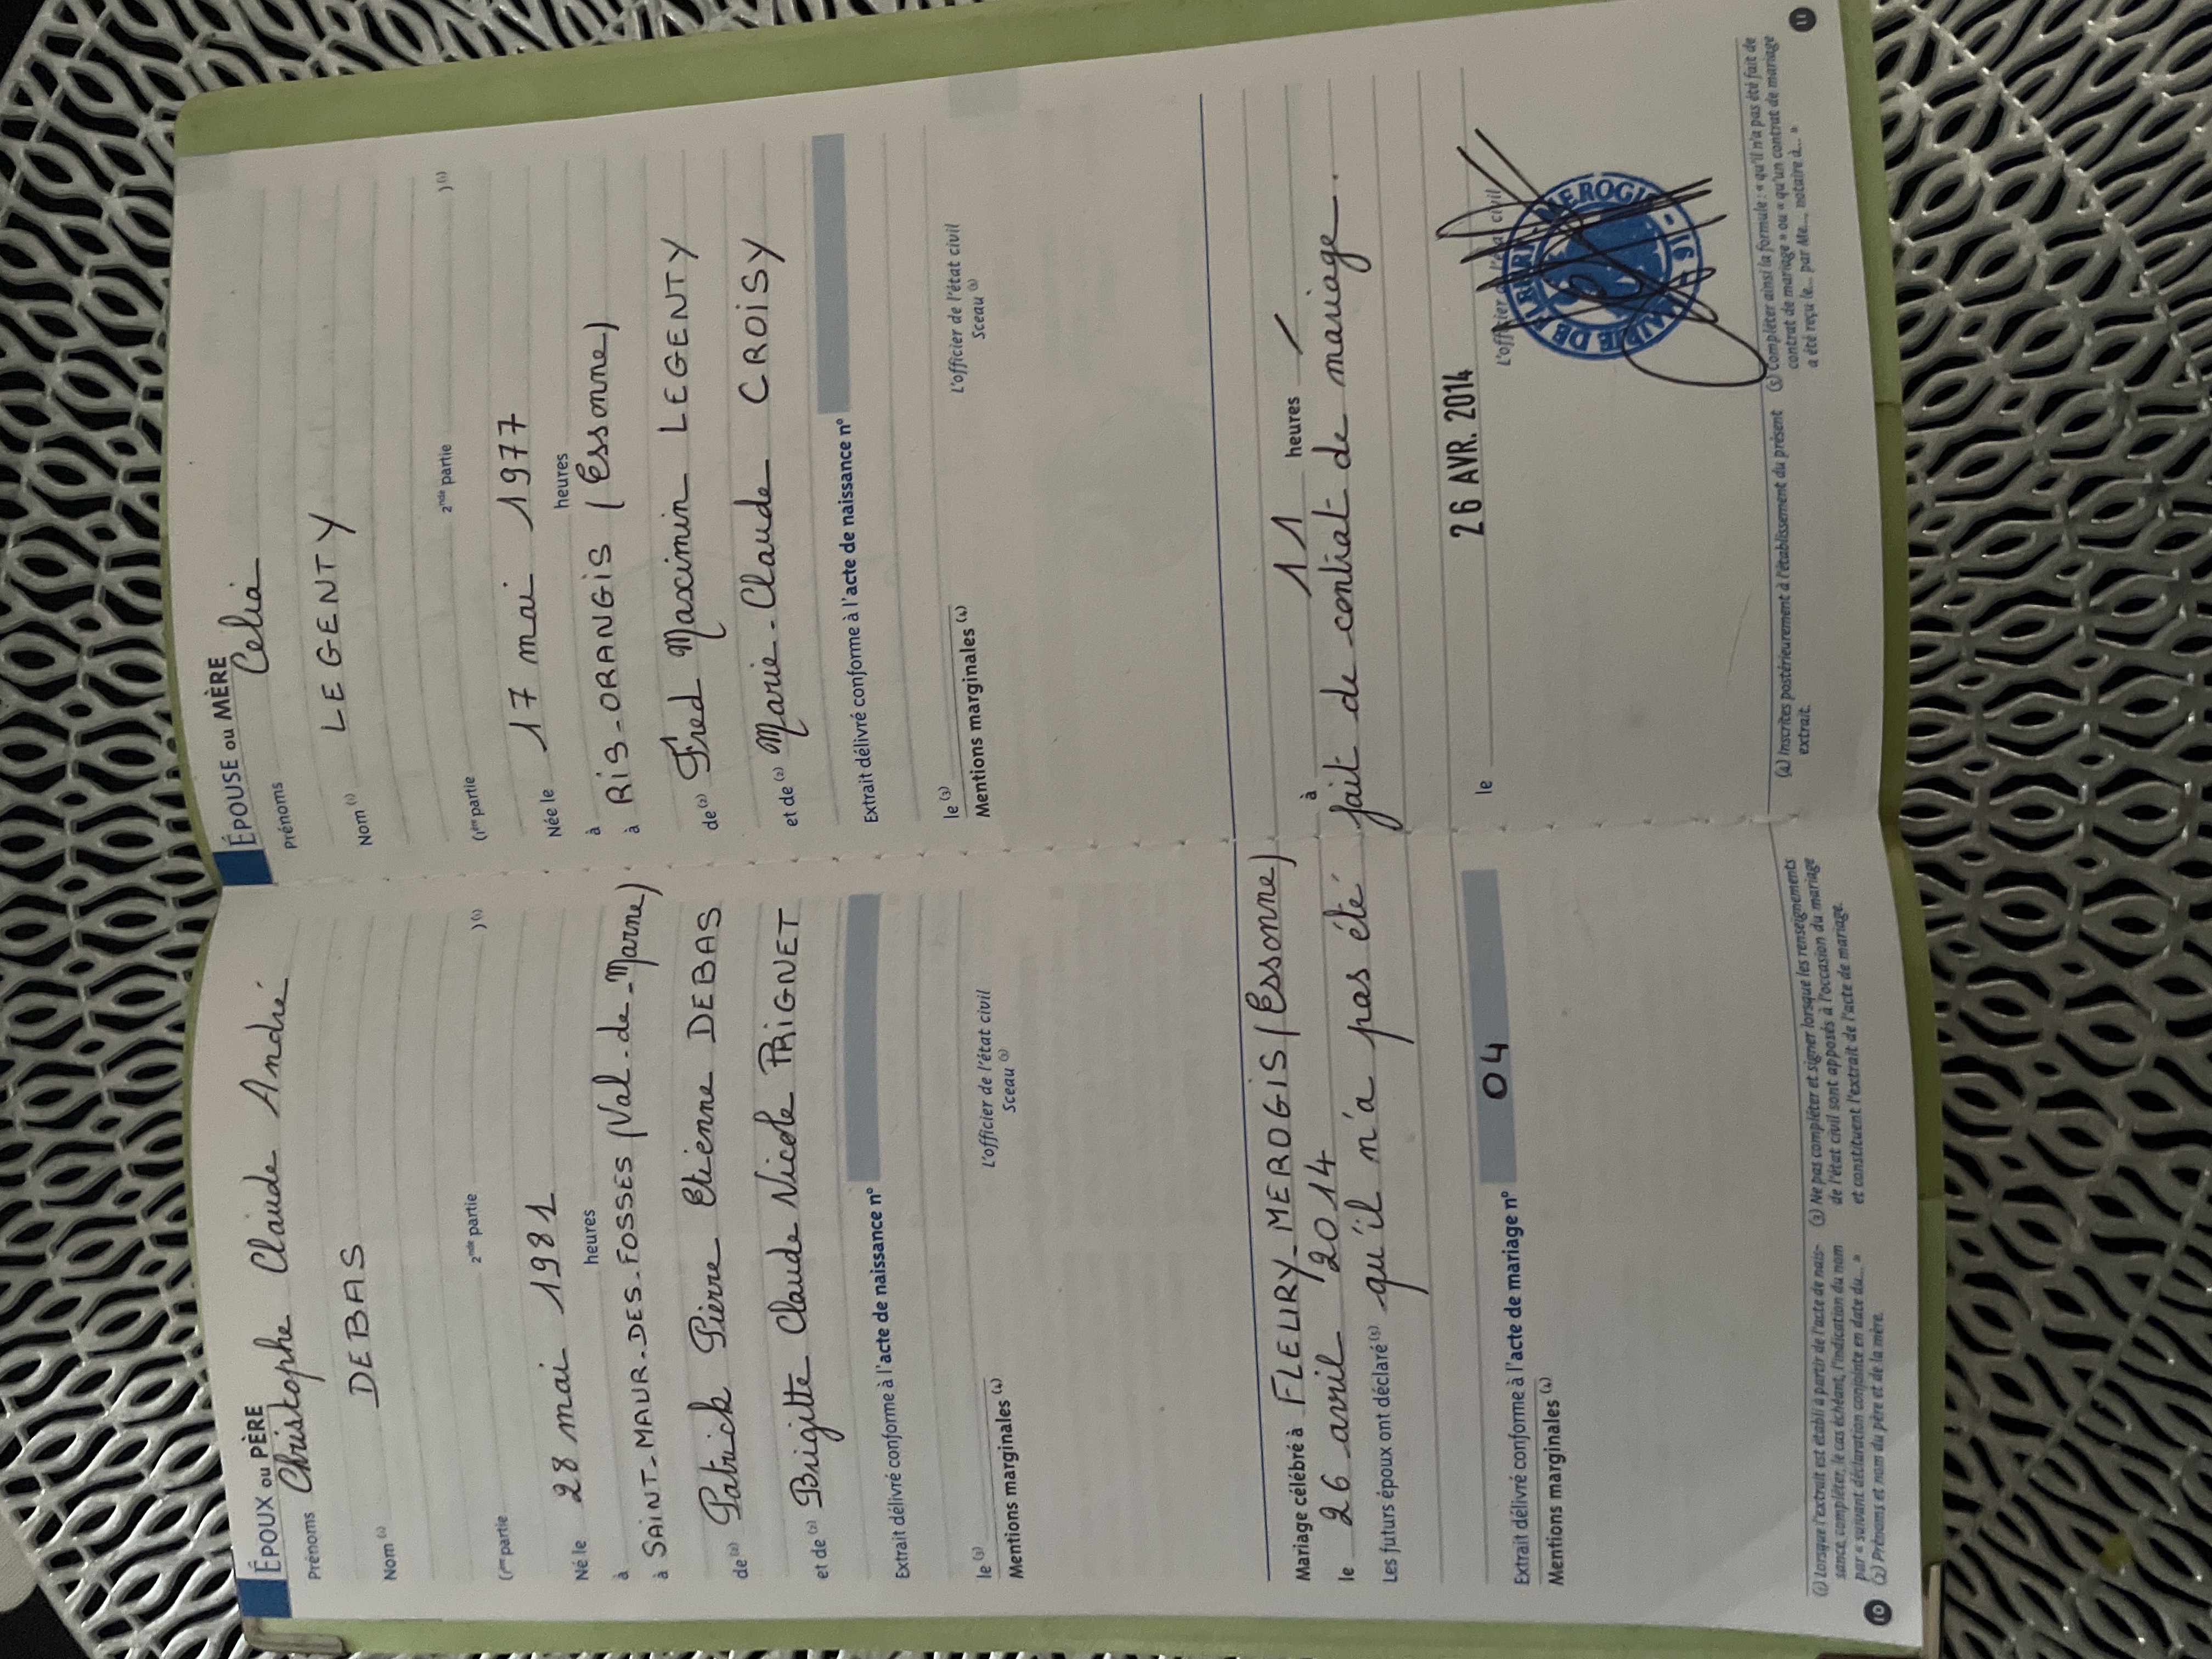 ÉPOUX ou PÈRE
Prénoms Christophe Claude André
Nom (1) DEBAS
(1ère partie 2nde partie ) (1)
Né le 28 mai 1981
à heures
à SAINT-MAUR-DES-FOSSES (Val-de-Marne)
de (2) Patrick Pierre Etienne DEBAS
et de (2) Brigitte Claude Nicole PRIGNET
Extrait délivré conforme à l'acte de naissance n°
le (3) L'officier de l'état civil
Sceau (3)
Mentions marginales (4)
ÉPOUSE ou MÈRE
Prénoms Celia
Nom (1) LEGENTY
(1ère partie 2nde partie ) (1)
Née le 17 mai 1977
à heures
à RIS-ORANGIS (Essonne)
de (2) Fred Maximin LEGENTY
et de (2) Marie-Claude CROISY
Extrait délivré conforme à l'acte de naissance n°
le (3) L'officier de l'état civil
Sceau (3)
Mentions marginales (4)
Mariage célébré à FLEURY-MEROGIS (Essonne)
le 26 avril 2014 à 11 heures
Les futurs époux ont déclaré (5) qu'il n'a pas été fait de contrat de mariage.
Extrait délivré conforme à l'acte de mariage n° 04 le 26 AVR. 2014
L'officier de l'état civil
Mentions marginales (4)
MAIRIE DE FLEURY-MEROGIS - 91 -
(1) Lorsque l'extrait est établi à partir de l'acte de nais-
sance, compléter, le cas échéant, l'indication du nom
par « suivant déclaration conjointe en date du... »
(2) Prénoms et nom du père et de la mère.
(3) Ne pas compléter et signer lorsque les renseignements
de l'état civil sont apposés à l'occasion du mariage
et constituent l'extrait de l'acte de mariage.
(4) Inscrites postérieurement à l'établissement du présent
extrait.
(5) Compléter ainsi la formule : « qu'il n'a pas été fait de
contrat de mariage » ou « qu'un contrat de mariage
a été reçu le... par Me..., notaire à... »
10
11